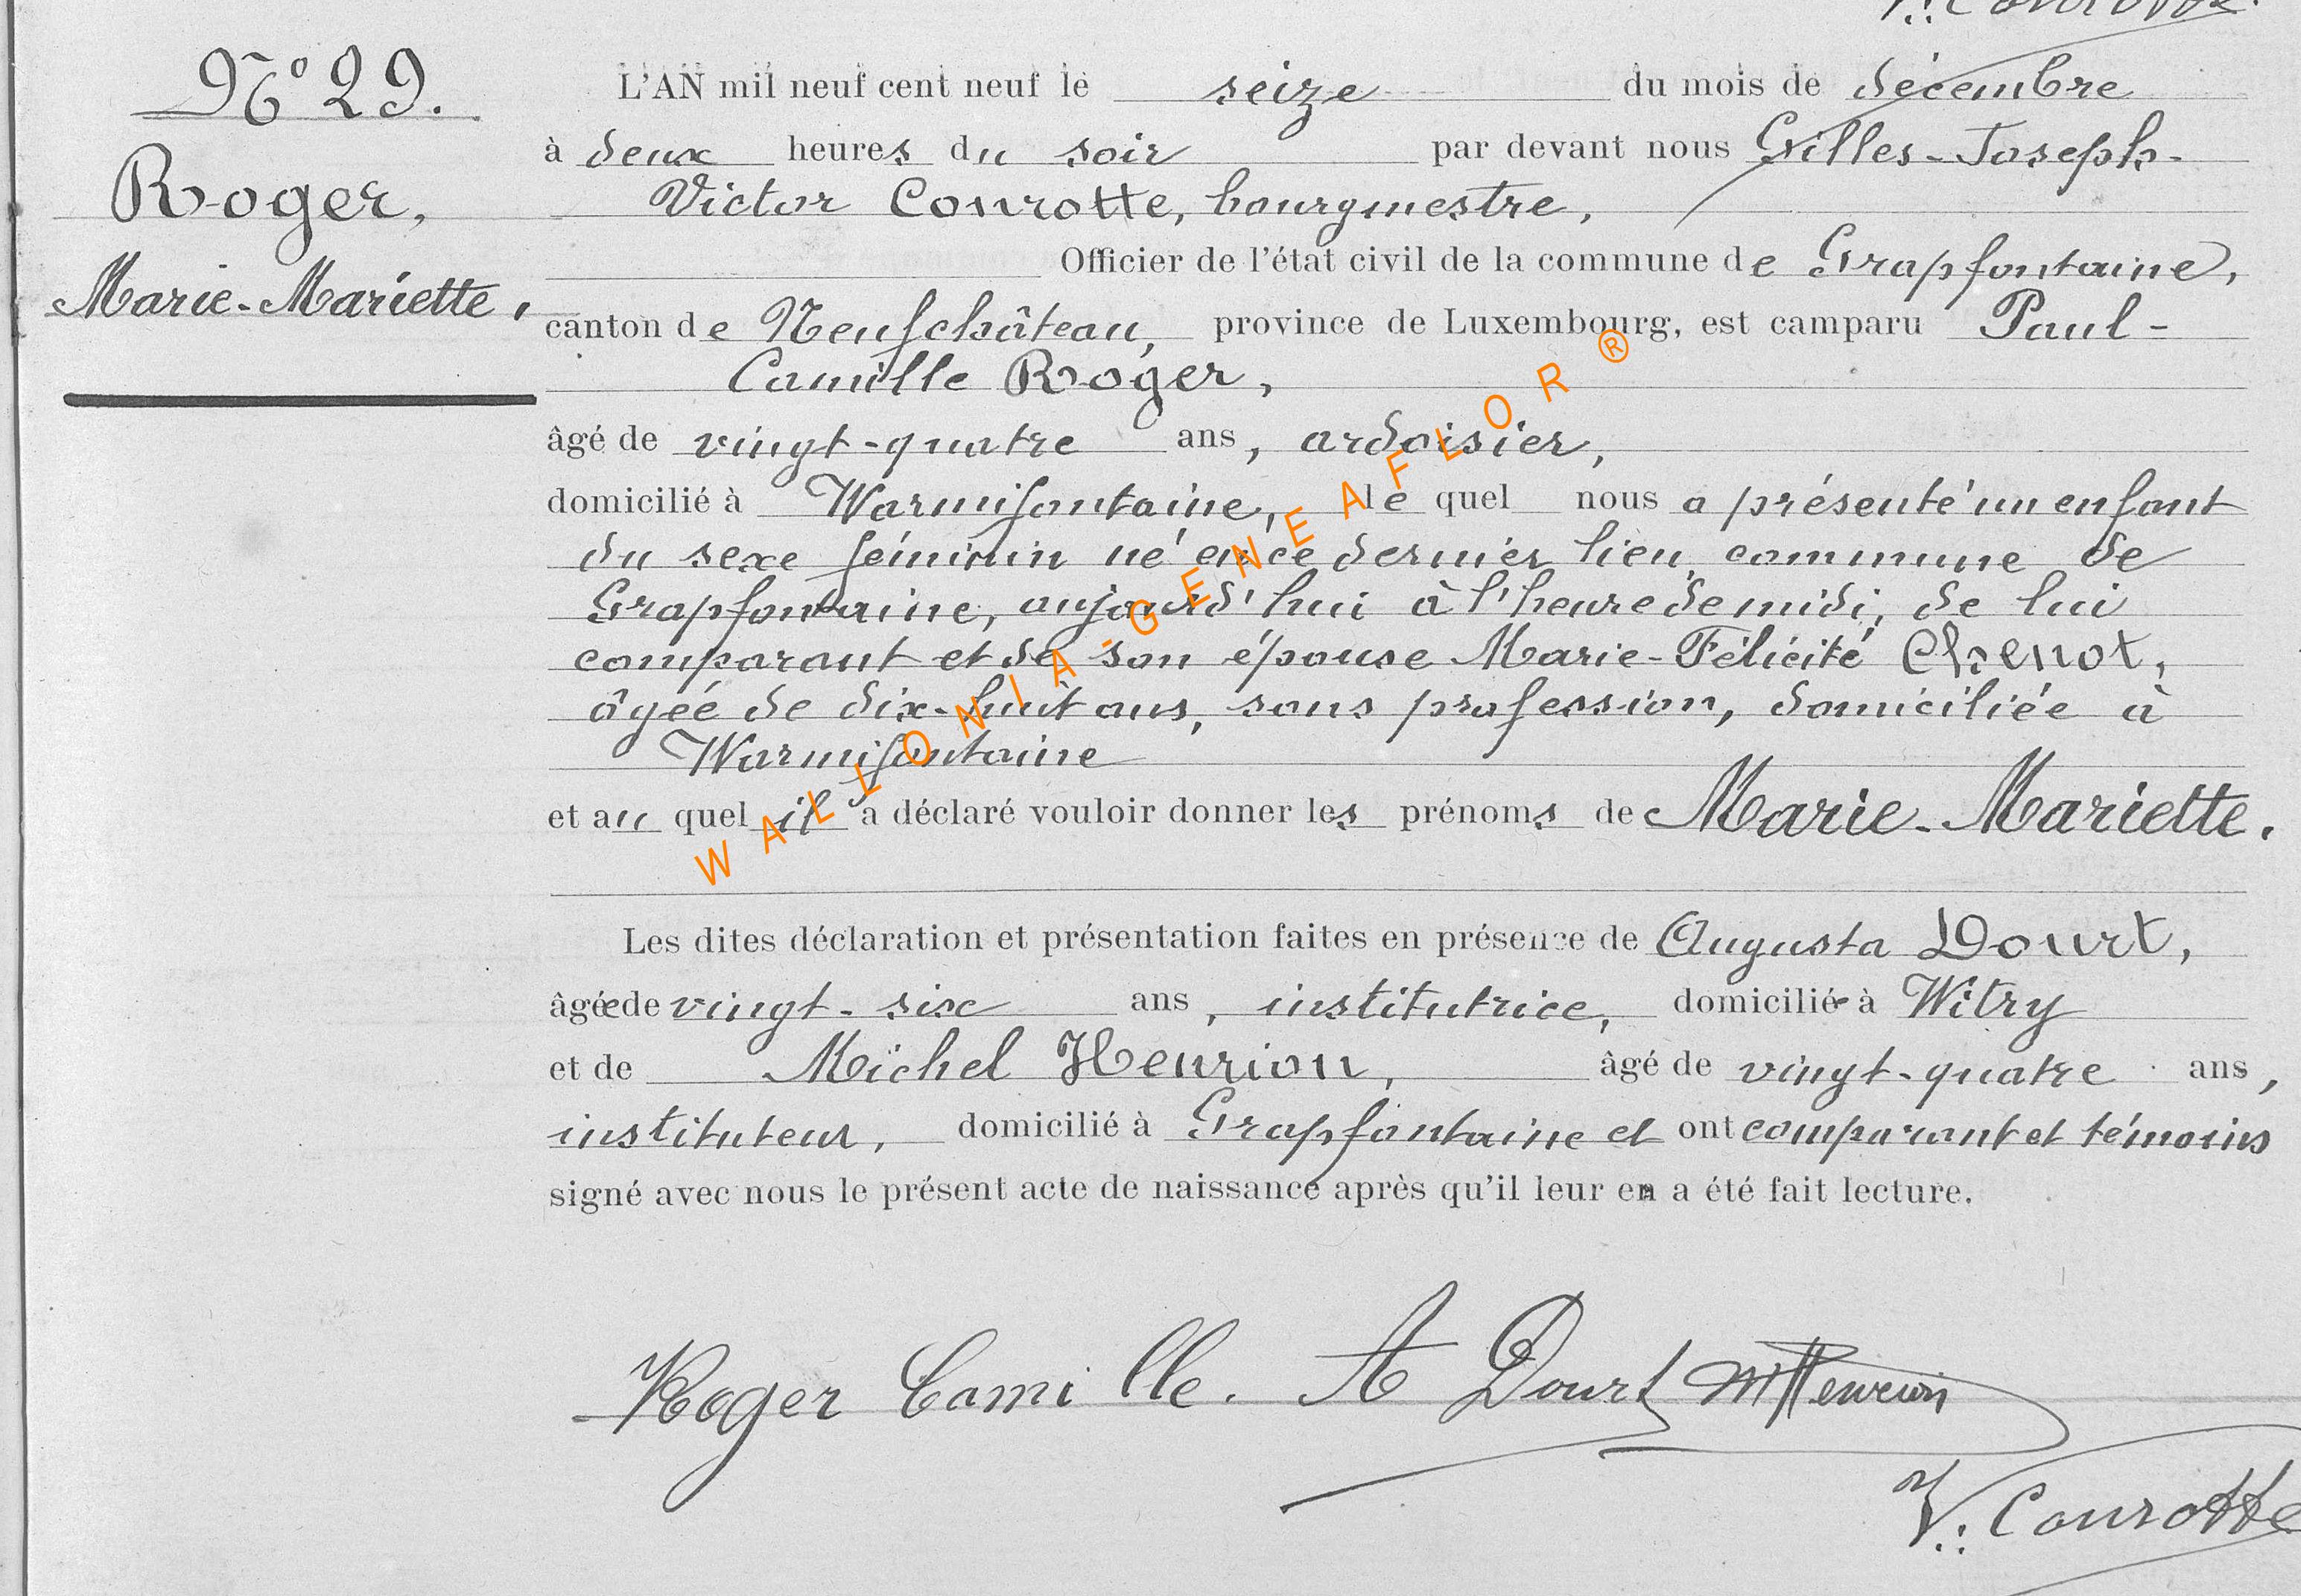 V. Conrotte.
N° 29.
Roger,
Marie-Mariette,
L'AN mil neuf cent neuf le seize du mois de décembre
à deux heures du soir par devant nous Gilles-Joseph-
Victor Conrotte, bourgmestre,
Officier de l'état civil de la commune de Grapfontaine,
canton de Neufchâteau, province de Luxembourg, est camparu Paul-
Camille Roger,
âgé de vingt-quatre ans, ardoisier,
domicilié à Warmifontaine, lequel nous a présenté un enfant
du sexe féminin né en ce dernier lieu, commune de
Grapfontaine, aujourd'hui à l'heure de midi, de lui
comparant et de son épouse Marie-Félicité Chenot,
âgée de dix-huit ans, sans profession, domiciliée à
Warmifontaine
et au quel il a déclaré vouloir donner les prénoms de Marie-Mariette.
Les dites déclaration et présentation faites en présence de Augusta Dourt,
âgée de vingt-six ans, institutrice, domiciliée à Witry
et de Michel Henrion, âgé de vingt-quatre ans,
instituteur, domicilié à Grapfontaine et ont comparant et témoins
signé avec nous le présent acte de naissance après qu'il leur en a été fait lecture.
Roger Camille. A Dourt MHenrion
V. Conrotte
WALLONIA-GENEAFLOR ®